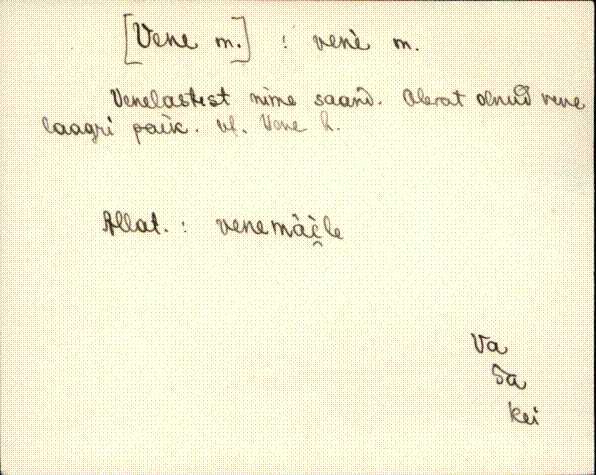 [Vene m.] : venè m.
Venelastest nime saand. Olevat olnud vene
laagri paik. vt. Vene h.
Allat. : venemäe̯le
Va
Sa
kei